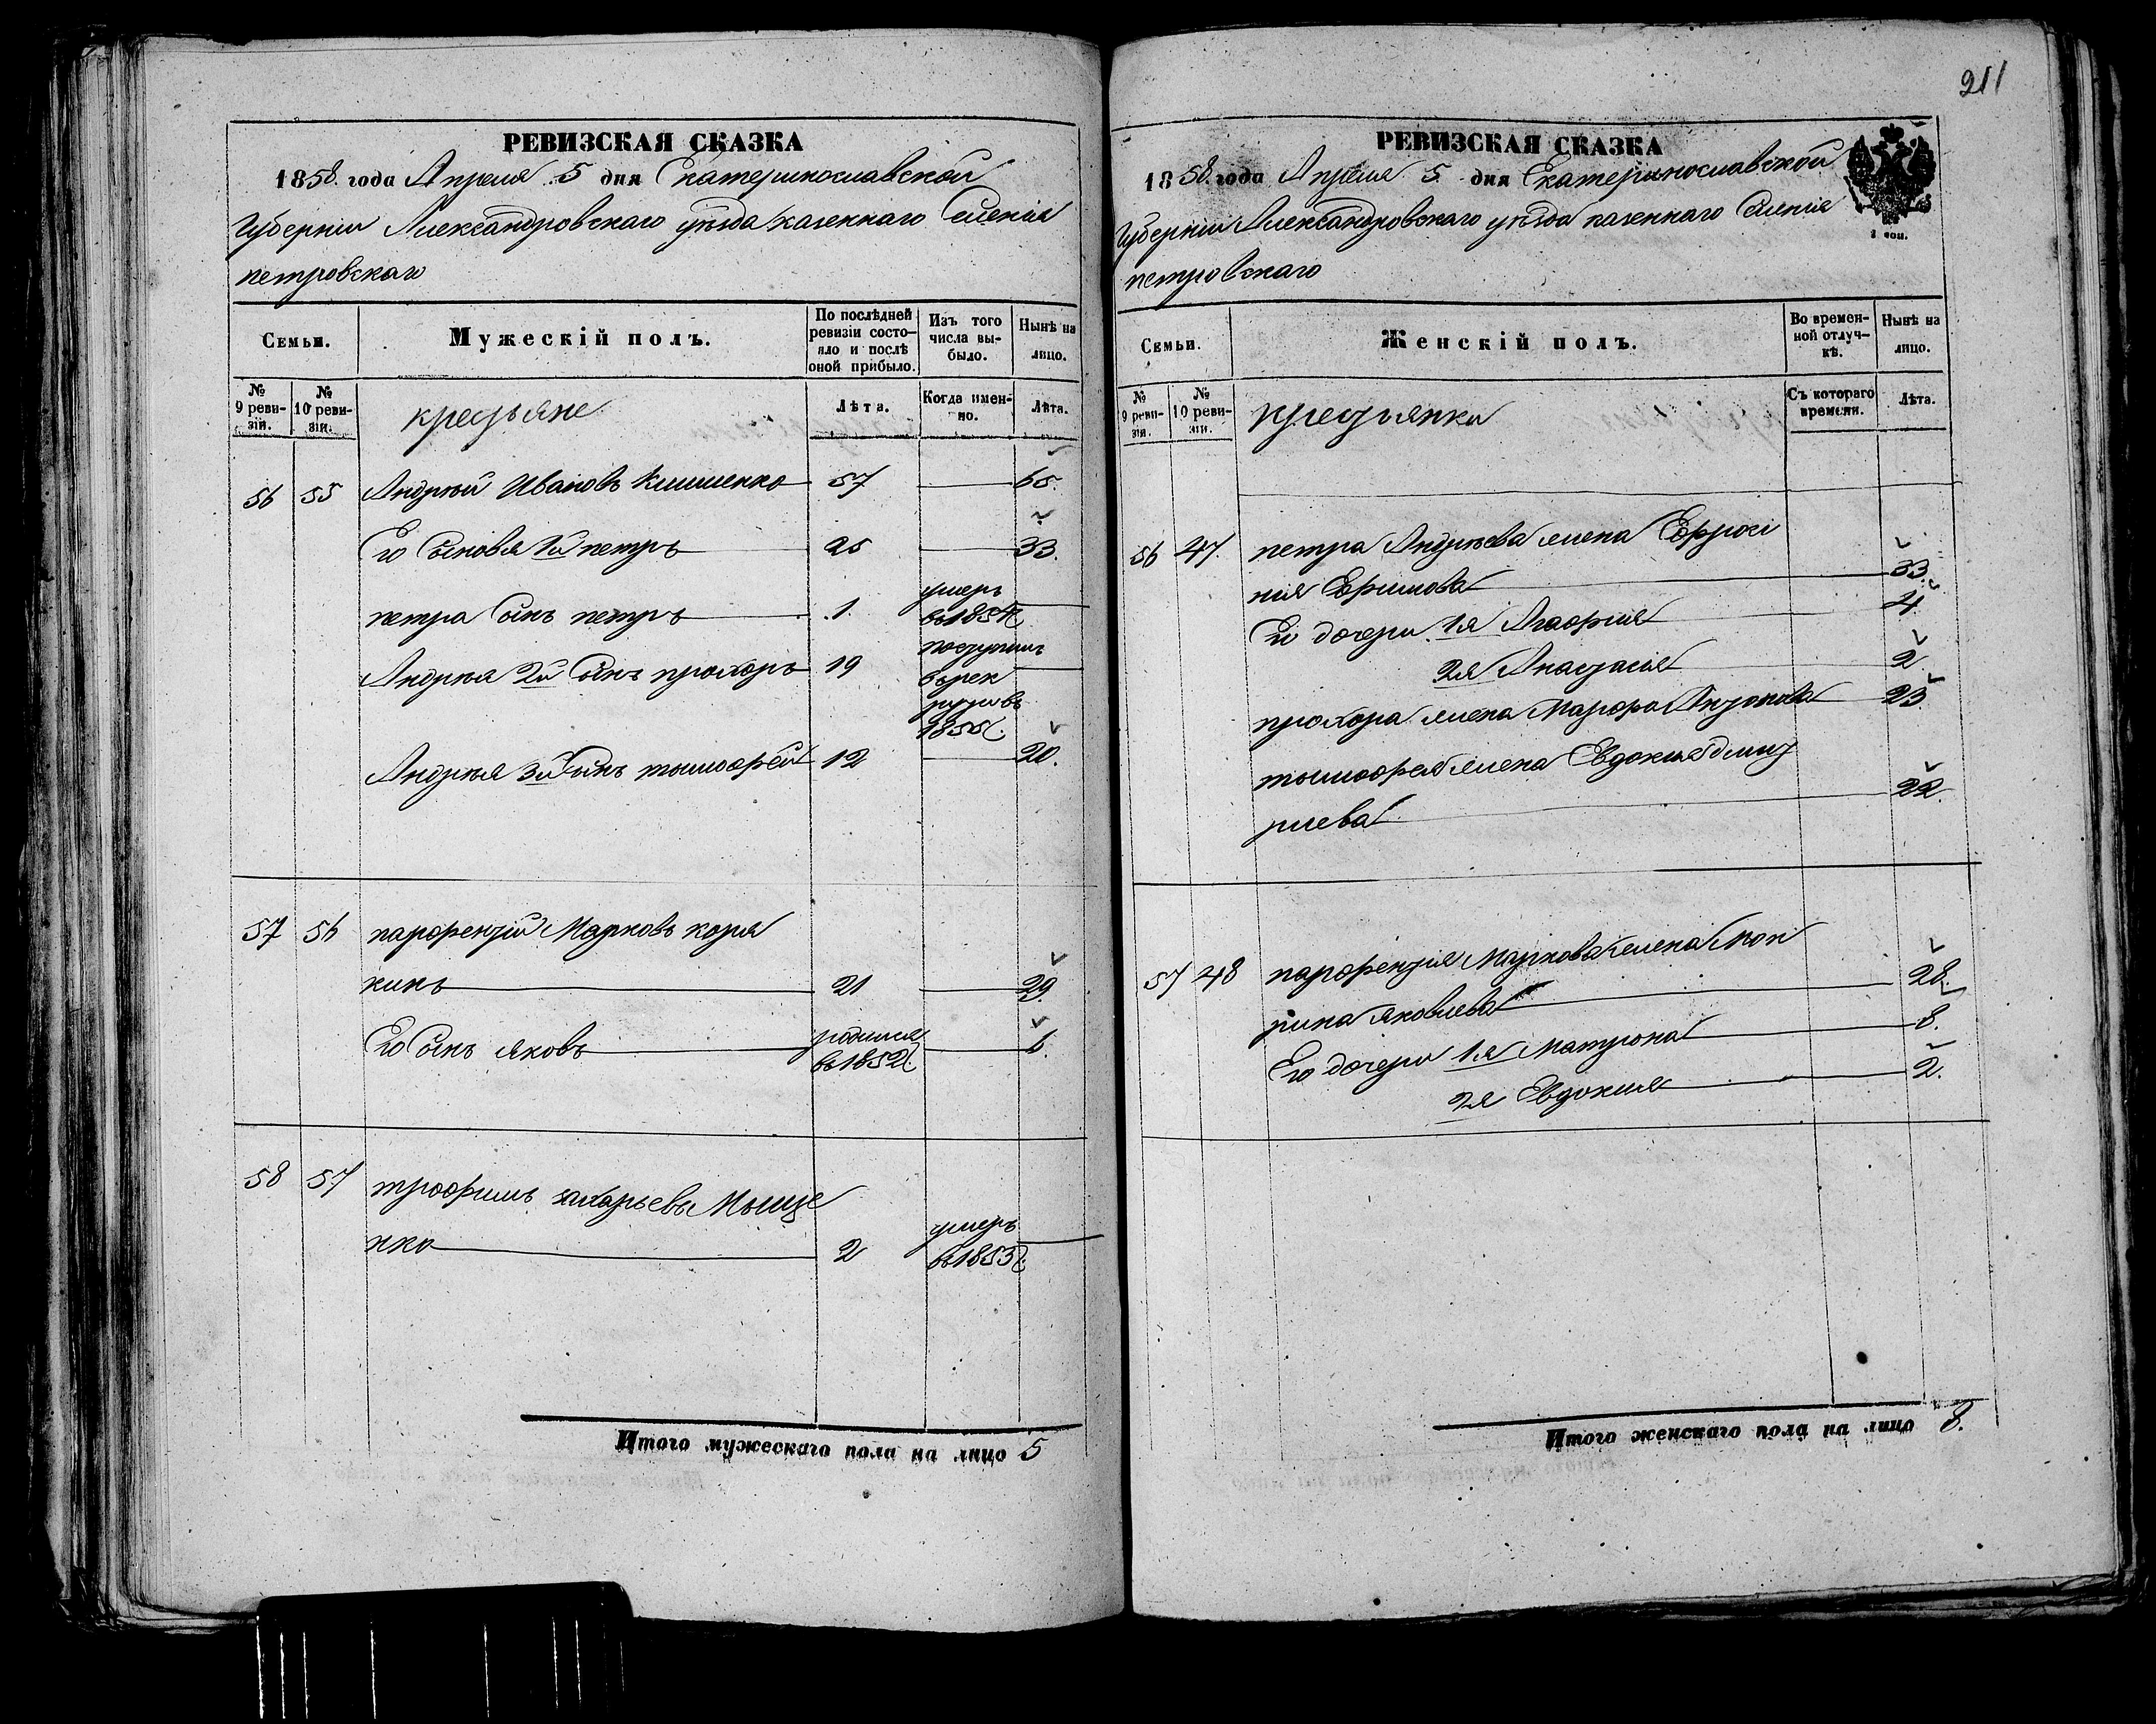 211
РЕВИЗСКАЯ СКАЗКА
1858. года Апреля 5 дня Екатеринославской
Губернии Александровского уезда казенного Селения
петровскаго
Семьи.
Мужескій полъ.
По послѣдней ревизіи состояло и послѣ оной прибыло.
Изъ того числа выбыло.
Нынѣ на лицо.
№ 9 ревизіи.
№ 10 ревизіи.
крестьяне
Лѣта.
Когда именно.
Лѣта.
56 55 Андрей Ивановъ 57 65.
Его Сыновья 1й петръ 25 33.
петра Сынъ петръ 1. умеръ в 1854
Андрея 2й Сынъ прохоръ 19 поступилъ в рекруты в 1855
Андрея 3й Сынъ тымофей 12 20.
57 56 парфентий Марковъ коря
кинъ 21 29.
Его Сынъ яковъ родился в 1852 6.
58 57 трофимъ захарьевъ Мыще
нко 2 умеръ в 1853
Итого мужескаго пола на лицо 5
РЕВИЗСКАЯ СКАЗКА
1858. года Апреля 5 дня Екатеринославской
Губернии Александровскаго уезда казеннаго Селения
петровскаго
1 коп.
Семьи.
Женскій полъ.
Во временной отлучкѣ.
Нынѣ на лицо.
№ 9 ревизіи.
№ 10 ревизіи.
крестьянки
Съ котораго времени.
Лѣта.
56 47. петра Андреева жена Ефроси
ния Ефимова 33.
Его дочери 1я Агафия 4.
2я Анастасия 2
прохора жена Марфа Антонова 23
тымофея жена Евдокия дмит
риева 22.
57 48 парфентия Маркова жена Мок
рина яковлева 28.
Его дочери 1я Матрона 8.
2я Евдокия 2.
Итого женскаго пола на лицо 8.